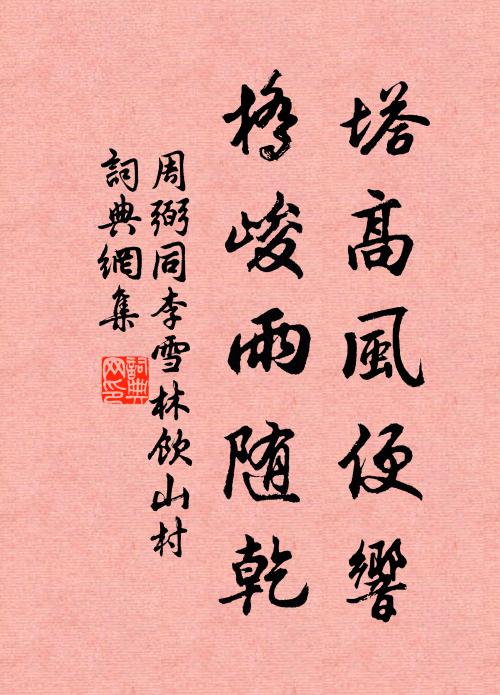 塔高風便響
橋峻雨随乾
周弼同李雪林飲山村
詞典網集
詞典網印